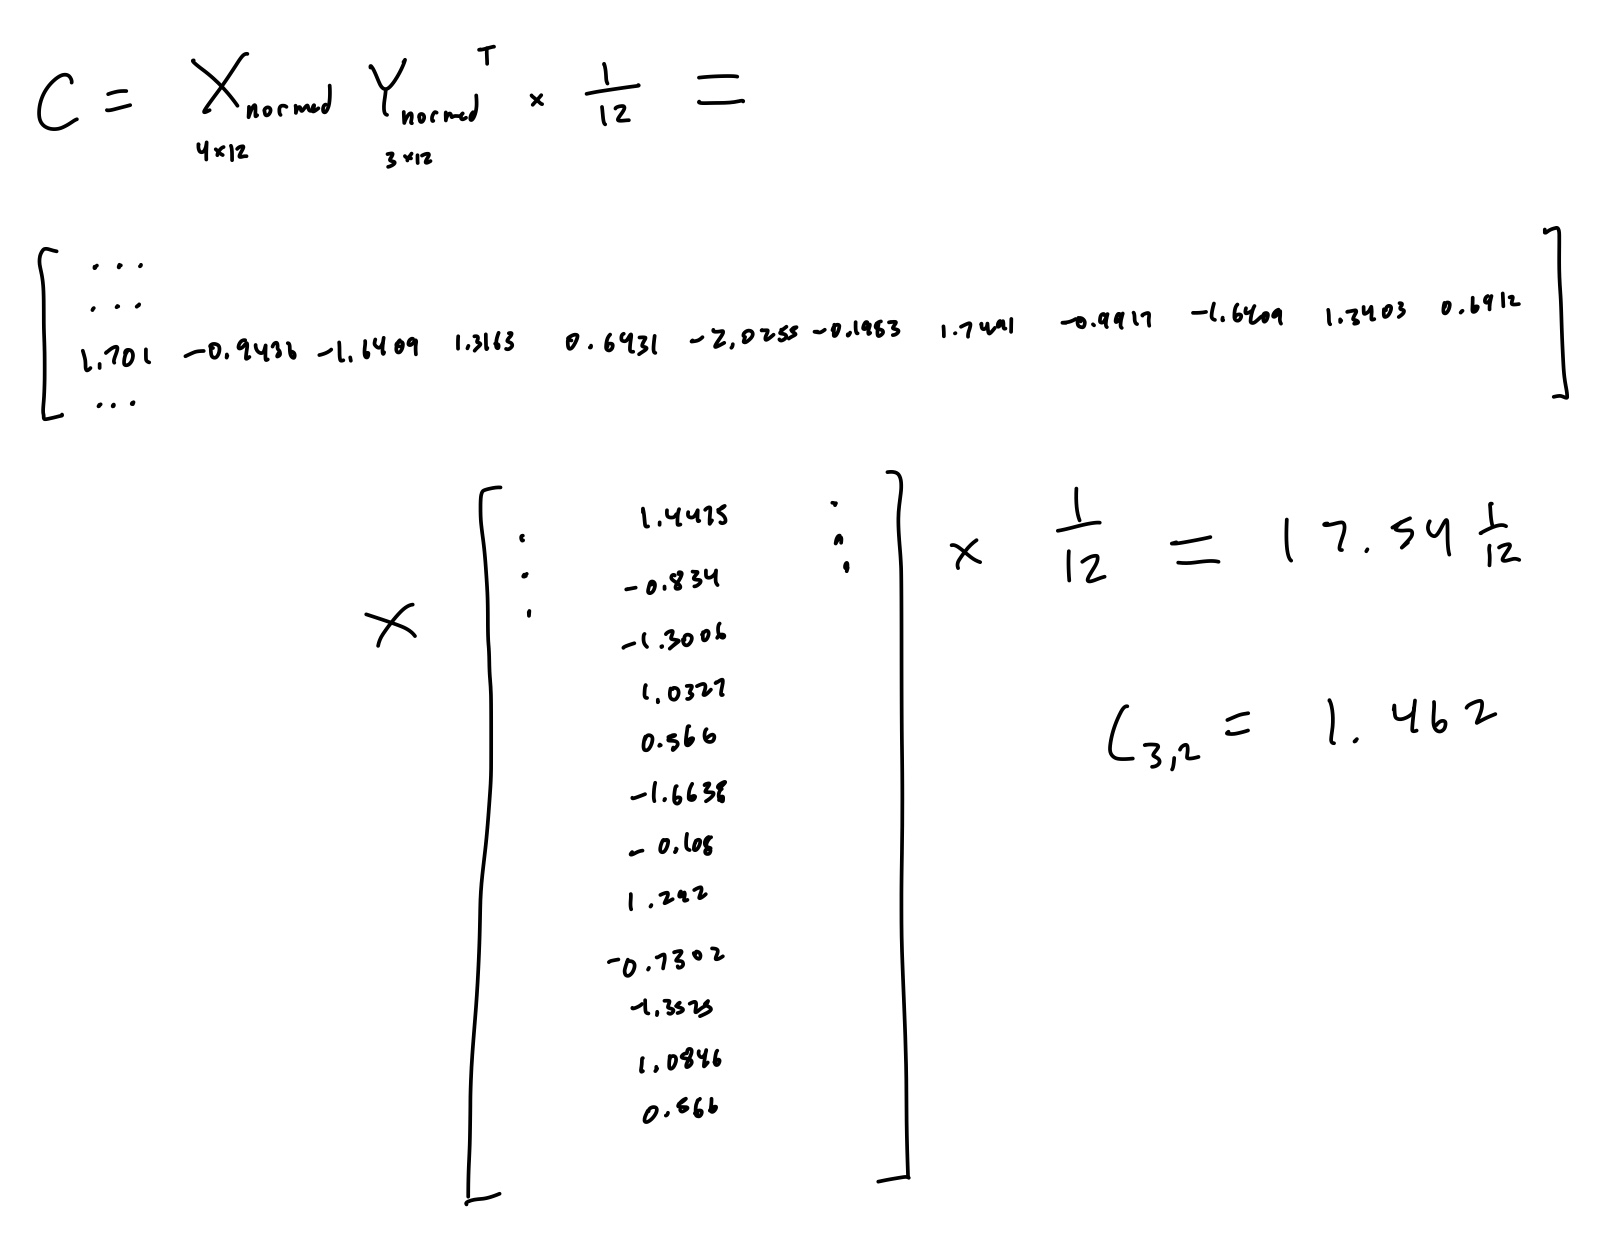 C = X_normed Y_normed^T × 1/12 =
4×12 3×12
[ ...
...
1.701 -0.9436 -1.6409 1.3163 0.6931 -2.0255 -0.1983 1.7491 -0.9917 -1.6409 1.3403 0.6912 ]
...
× [ 1.4475
-0.834
-1.3006
1.0327
0.566
-1.6638
-0.108
1.292
-0.7302
-1.3525
1.0846
0.566 ] × 1/12 = 17.54 1/12
C_3,2 = 1.462